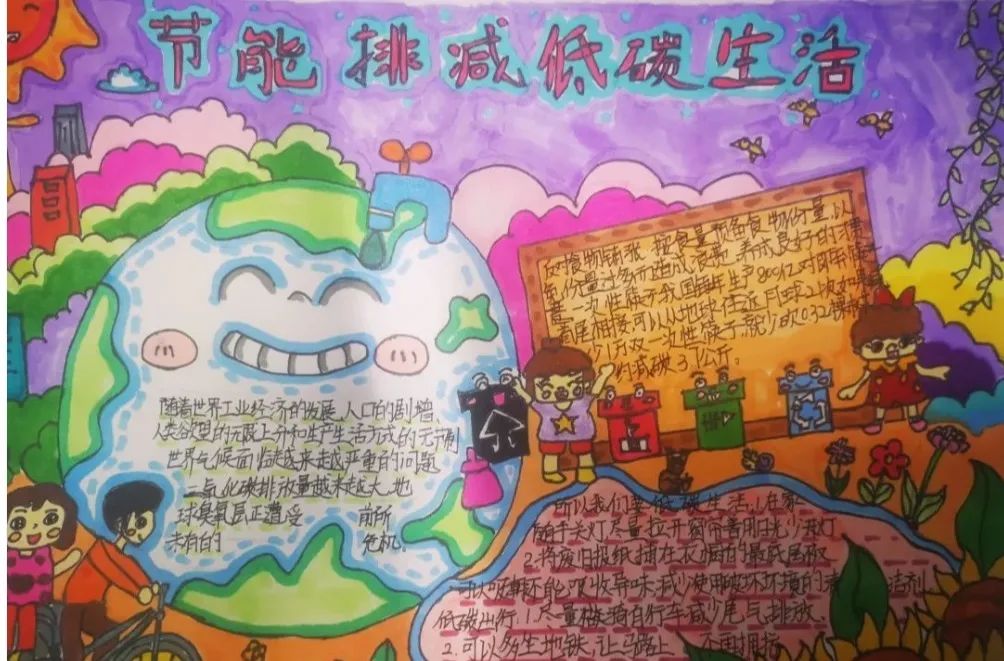 节能排减低碳生活
随着世界工业经济的发展，人口的剧增
人类欲望的无限上升和生产生活方式的无节制
世界气候面临越来越严重的问题
二氧化碳排放量越来越大，地
球臭氧层正遭受 前所
未有的 危机。
反对食物铺张，按食量预备食物份量，以
免份量过多而造成浪费，养成良好的
一次性筷子我国每年生产
首尾相接可以从地球往返月球21次
少1万双一次性筷子就少砍0.32棵
约减碳37公斤。
所以我们要低碳生活，1.在家
随手关灯尽量拉开窗帘善用日光少开灯
2.将废旧报纸铺在衣橱的最底层
可以吸潮还能吸收异味，减少使用破坏环境的清 洁剂
低碳出行：1.尽量骑自行车减少尾气排放。
2.可以多坐地铁，让马路上 不再拥挤